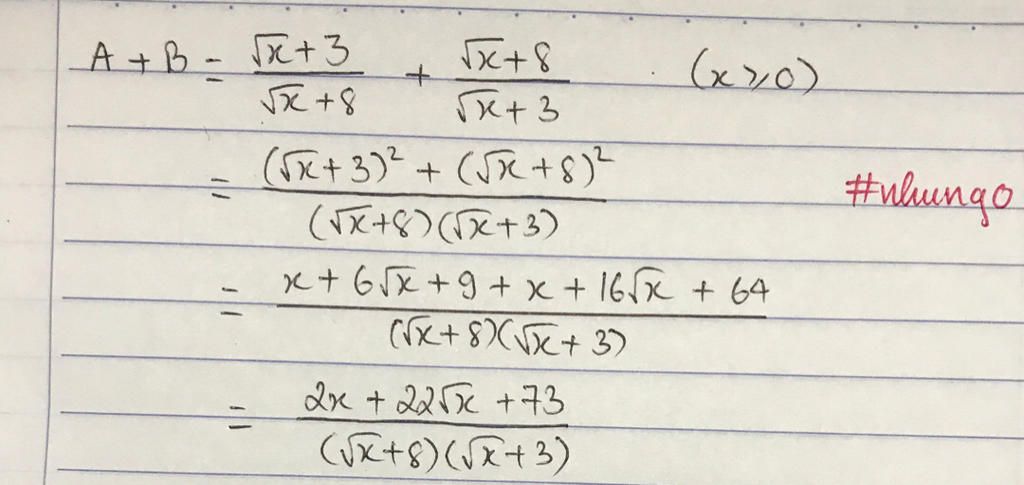 A + B = (√x + 3)/(√x + 8) + (√x + 8)/(√x + 3) (x ⩾ 0)
= ((√x + 3)² + (√x + 8)²)/((√x + 8)(√x + 3))
#nhungo
= (x + 6√x + 9 + x + 16√x + 64)/((√x + 8)(√x + 3))
= (2x + 22√x + 73)/((√x + 8)(√x + 3))